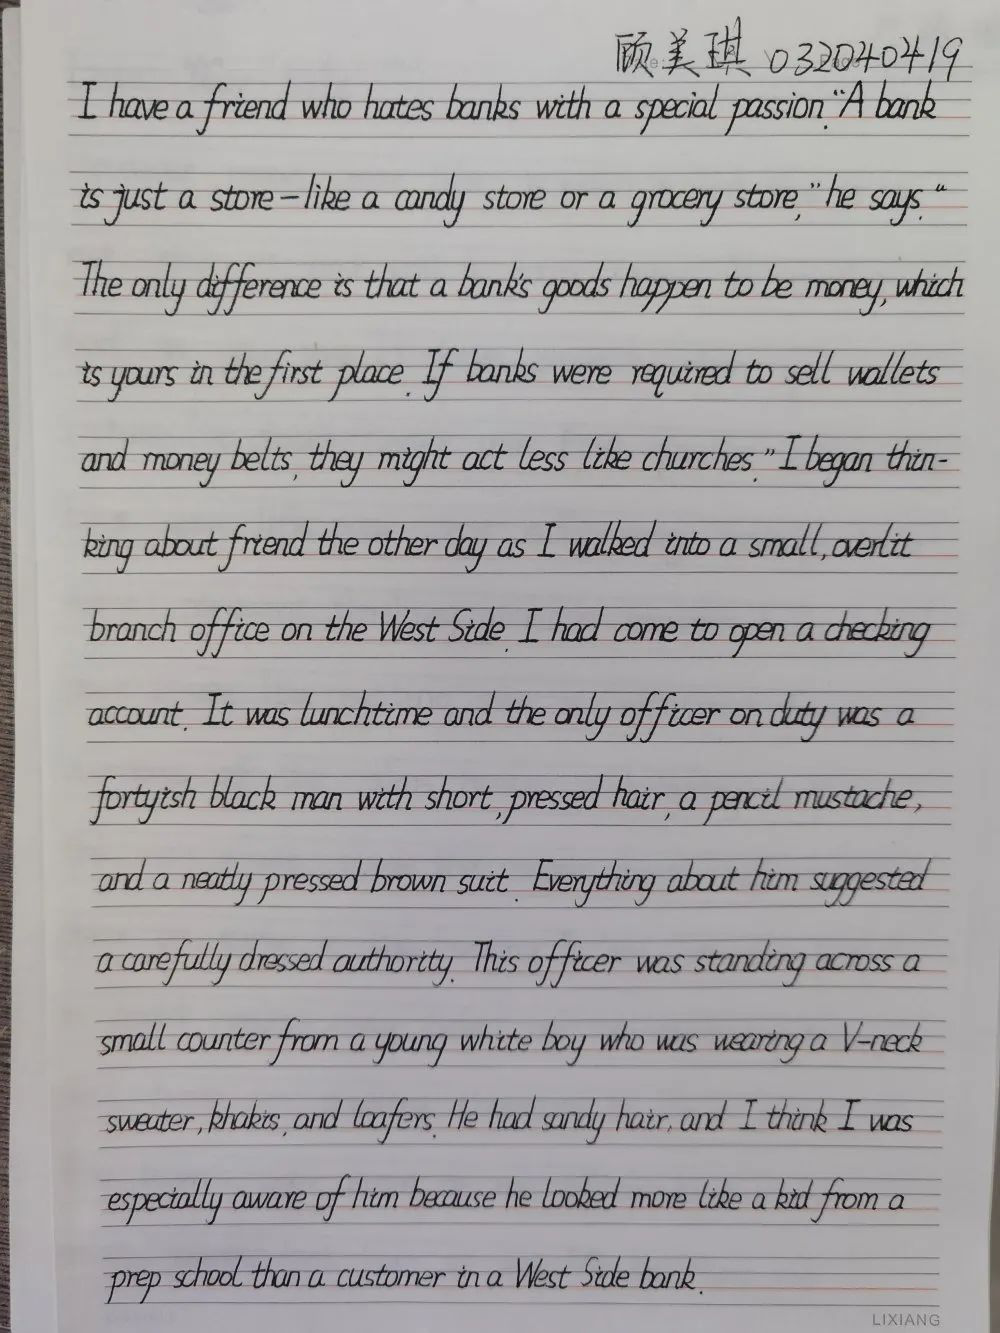 顾美琪 032040419
I have a friend who hates banks with a special passion. "A bank
is just a store – like a candy store or a grocery store," he says. "
The only difference is that a bank's goods happen to be money, which
is yours in the first place. If banks were required to sell wallets
and money belts, they might act less like churches." I began thin-
king about friend the other day as I walked into a small, overlit
branch office on the West Side. I had come to open a checking
account. It was lunchtime and the only officer on duty was a
fortyish black man with short, pressed hair, a pencil mustache,
and a neatly pressed brown suit. Everything about him suggested
a carefully dressed authority. This officer was standing across a
small counter from a young white boy who was wearing a V-neck
sweater, khakis, and loafers. He had sandy hair, and I think I was
especially aware of him because he looked more like a kid from a
prep school than a customer in a West Side bank.
LIXIANG